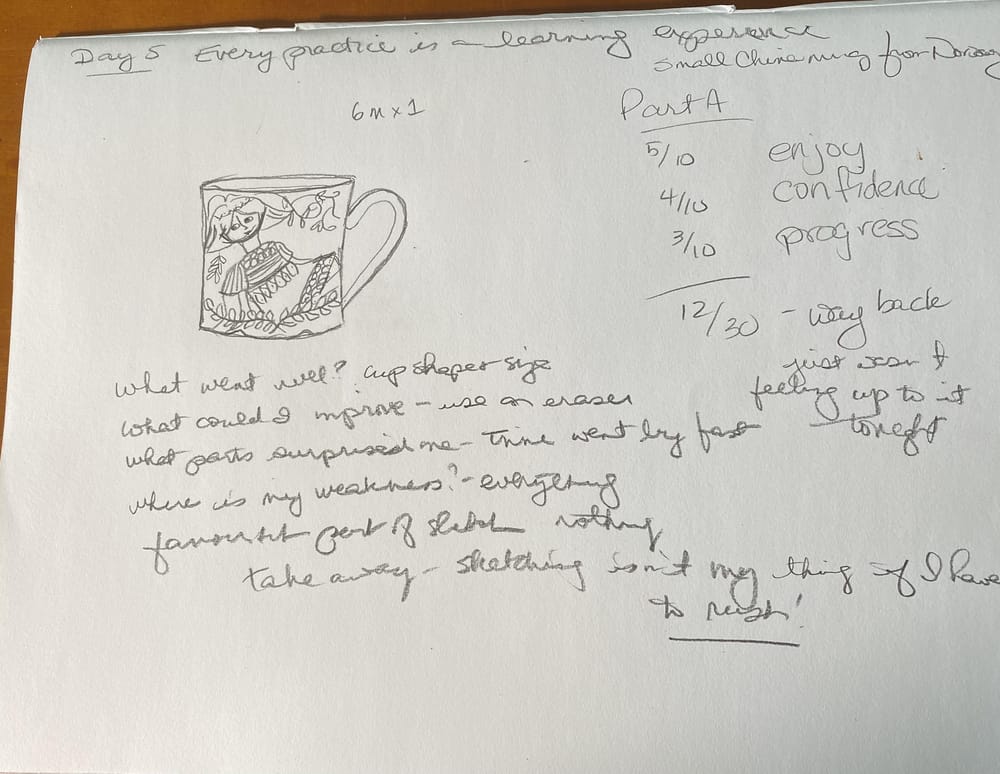 Day 5 Every practice is a learning experience
small China mug from Norway
6m x 1
Part A
5/10 enjoy
4/10 confidence
3/10 progress
12/30 - way back
just wasn't
feeling up to it
tonight
what went well? cup shape + size
what could I improve - use an eraser
what parts surprised me - Time went by fast
where is my weakness? - everything
favourite part of sketch nothing
take away - sketching isn't my thing if I have
to rush!